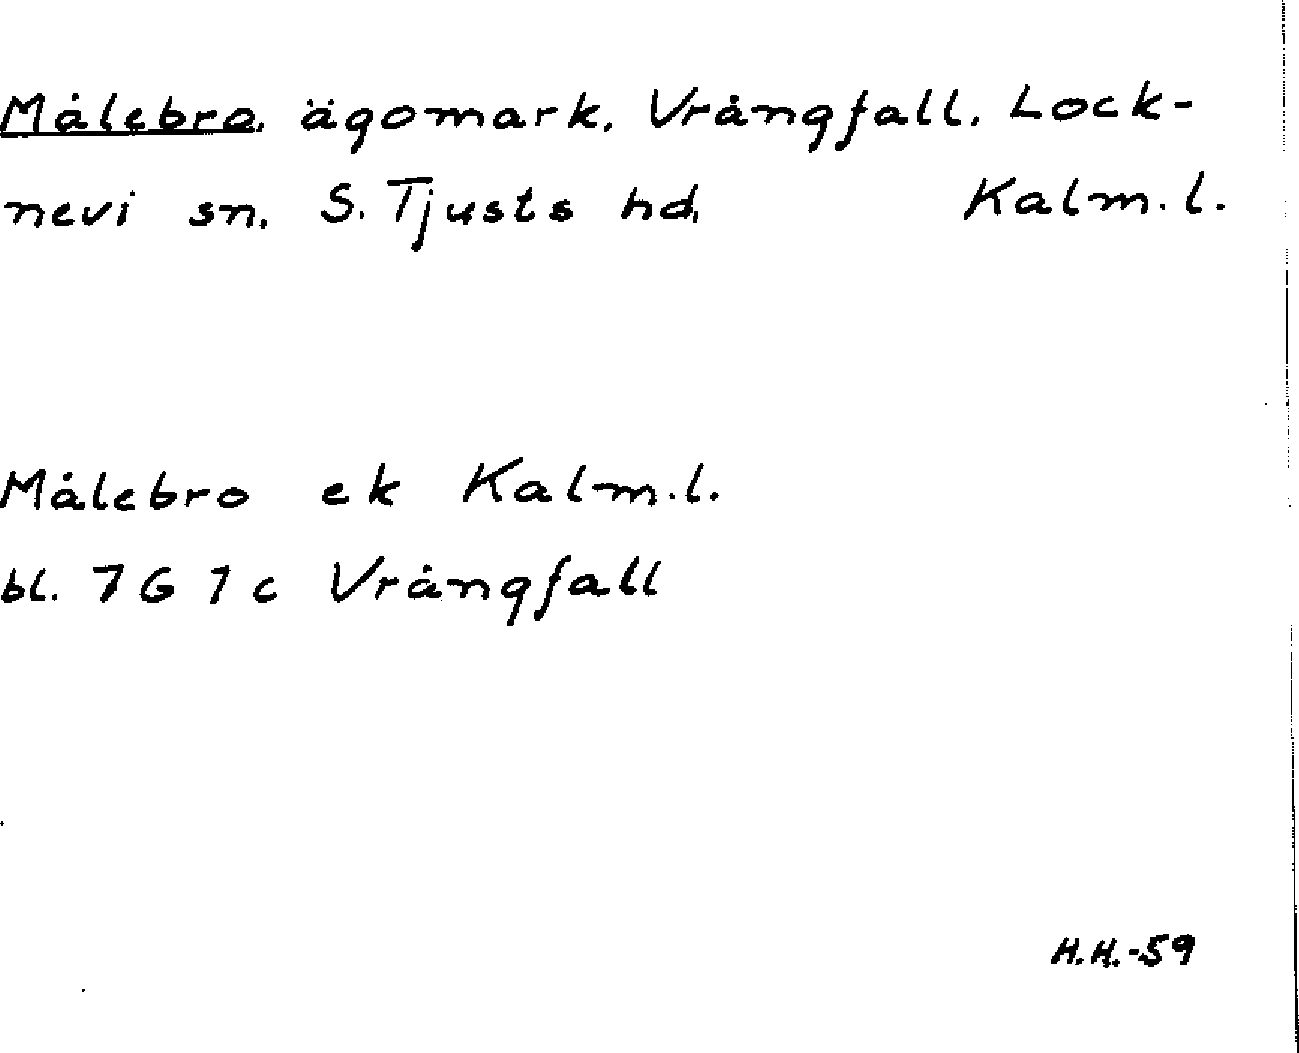 Målebro, ägomark, Vrångfall, Lock-
nevi sn, S. Tjusts hd, Kalm. l.
Målebro ek Kalm. l.
bl. 7 G 1 c Vrångfall
H.H.-59